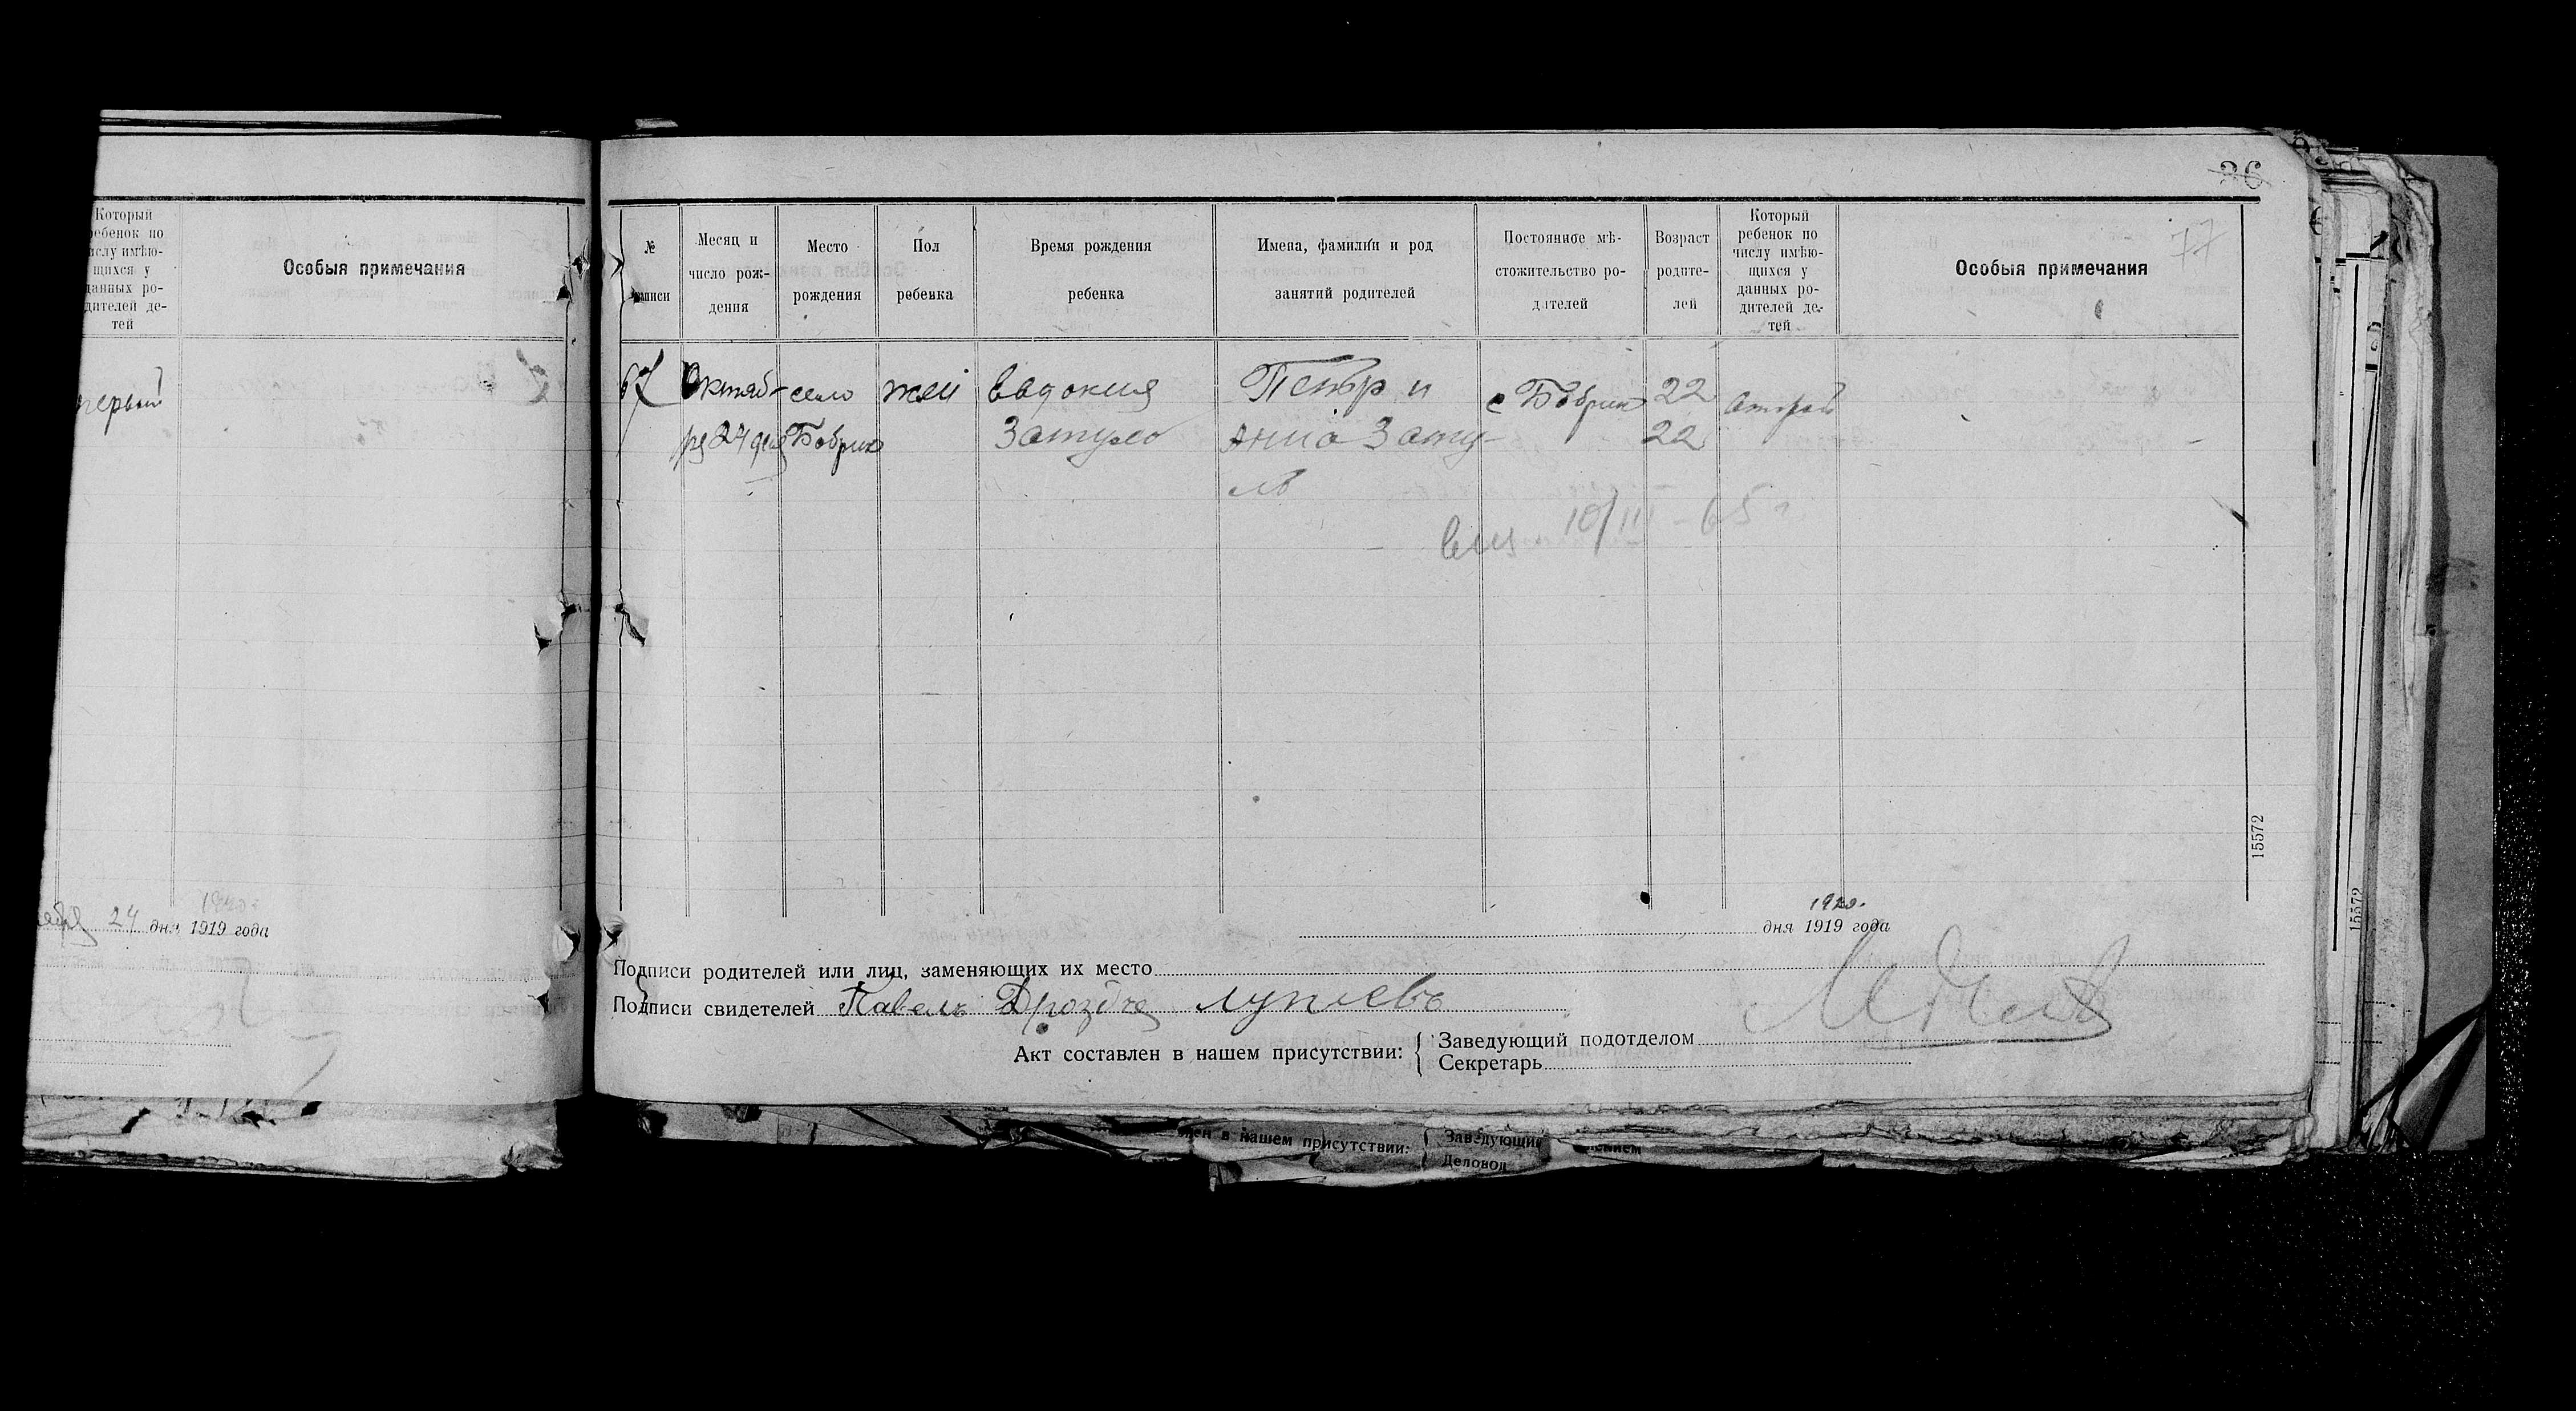 Который
ребенок по
числу имѣю-
щихся у
данных ро-
дителей де-
тей
Особыя примечания
первый
24 дня 1919 года
36
77
№
записи
Месяц и
число рож-
дения
Место
рождения
Пол
ребенка
Время рождения
ребенка
Имена, фамилии и род
занятий родителей
Постоянное мѣ-
стожительство ро-
дителей
Возраст
родите-
лей
Который
ребенок по
числу имѣю-
щихся у
данных ро-
дителей де-
тей
Особыя примечания
67
Октяб-
ря 24 дня
село
Бобрик
жен
Евдокия
Затуло
Петр и
Анна Зату-
ло
с Бобрик
22
22
второй
10/III - 65 г
15572
1920.
дня 1919 года
Подписи родителей или лиц, заменяющих их место
Подписи свидетелей Павелъ
Акт составлен в нашем присутствии:
Заведующий подотделом
Секретарь
15572
в нашем присутствии:
Заведующий
Деловод